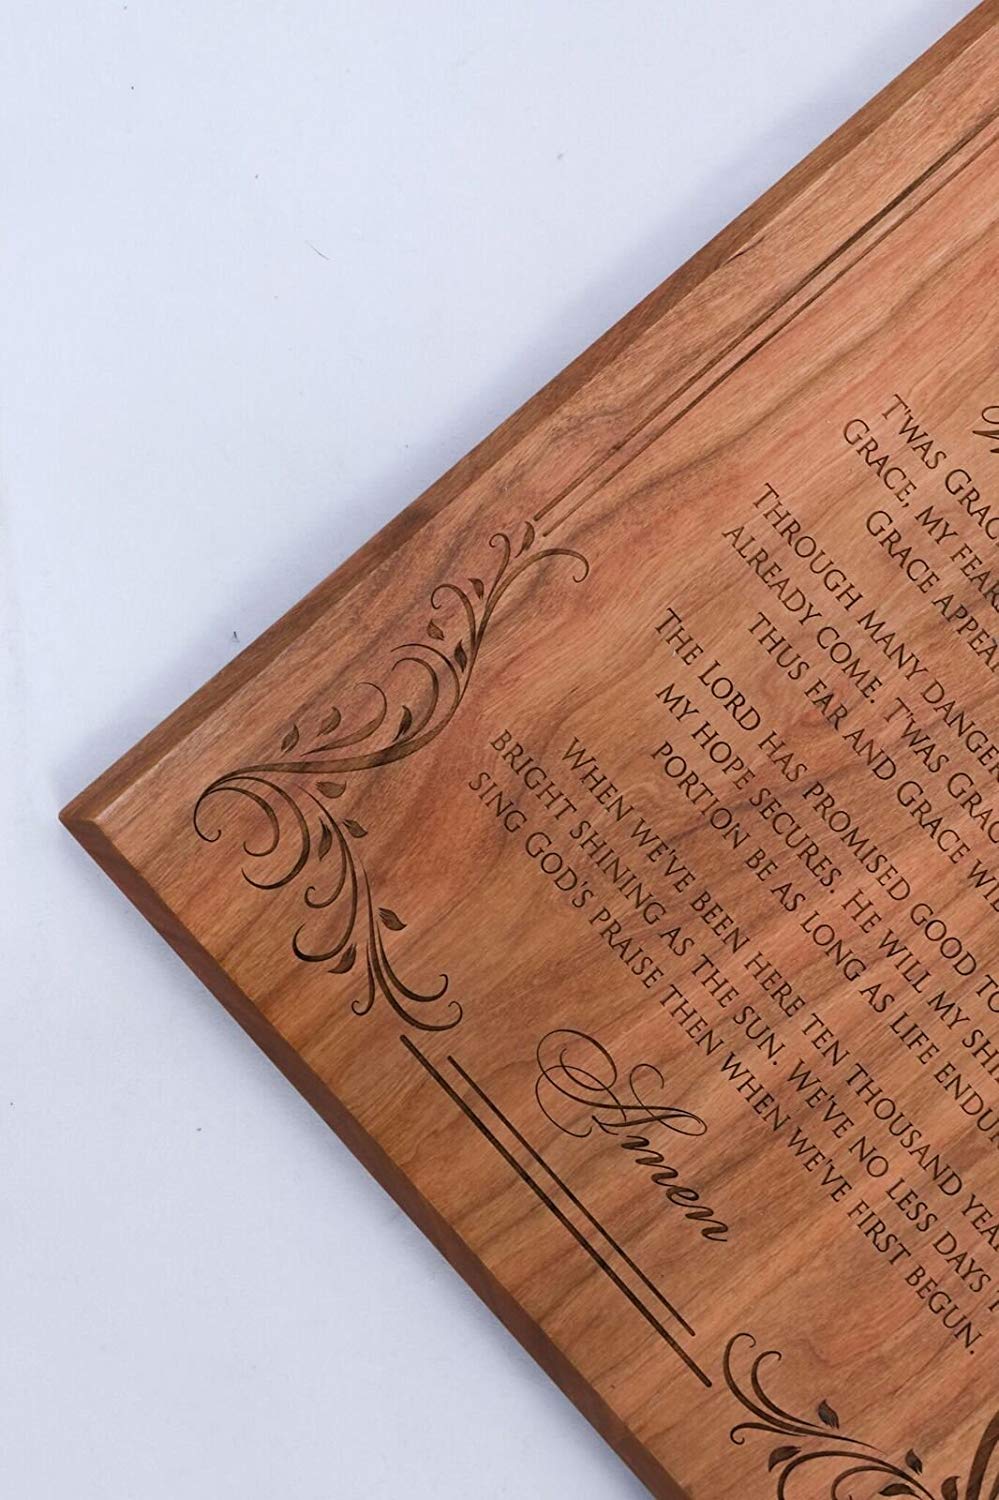 T'WAS GRAC
GRACE, MY FEAR
GRACE APPEA
THROUGH MANY DANGER
ALREADY COME. T'WAS GRAC
THUS FAR AND GRACE WI
THE LORD HAS PROMISED GOOD TO
MY HOPE SECURES. HE WILL MY SHI
PORTION BE AS LONG AS LIFE ENDU
WHEN WE'VE BEEN HERE TEN THOUSAND YEA
BRIGHT SHINING AS THE SUN. WE'VE NO LESS DAYS
SING GOD'S PRAISE THEN WHEN WE'VE FIRST BEGUN.
Amen